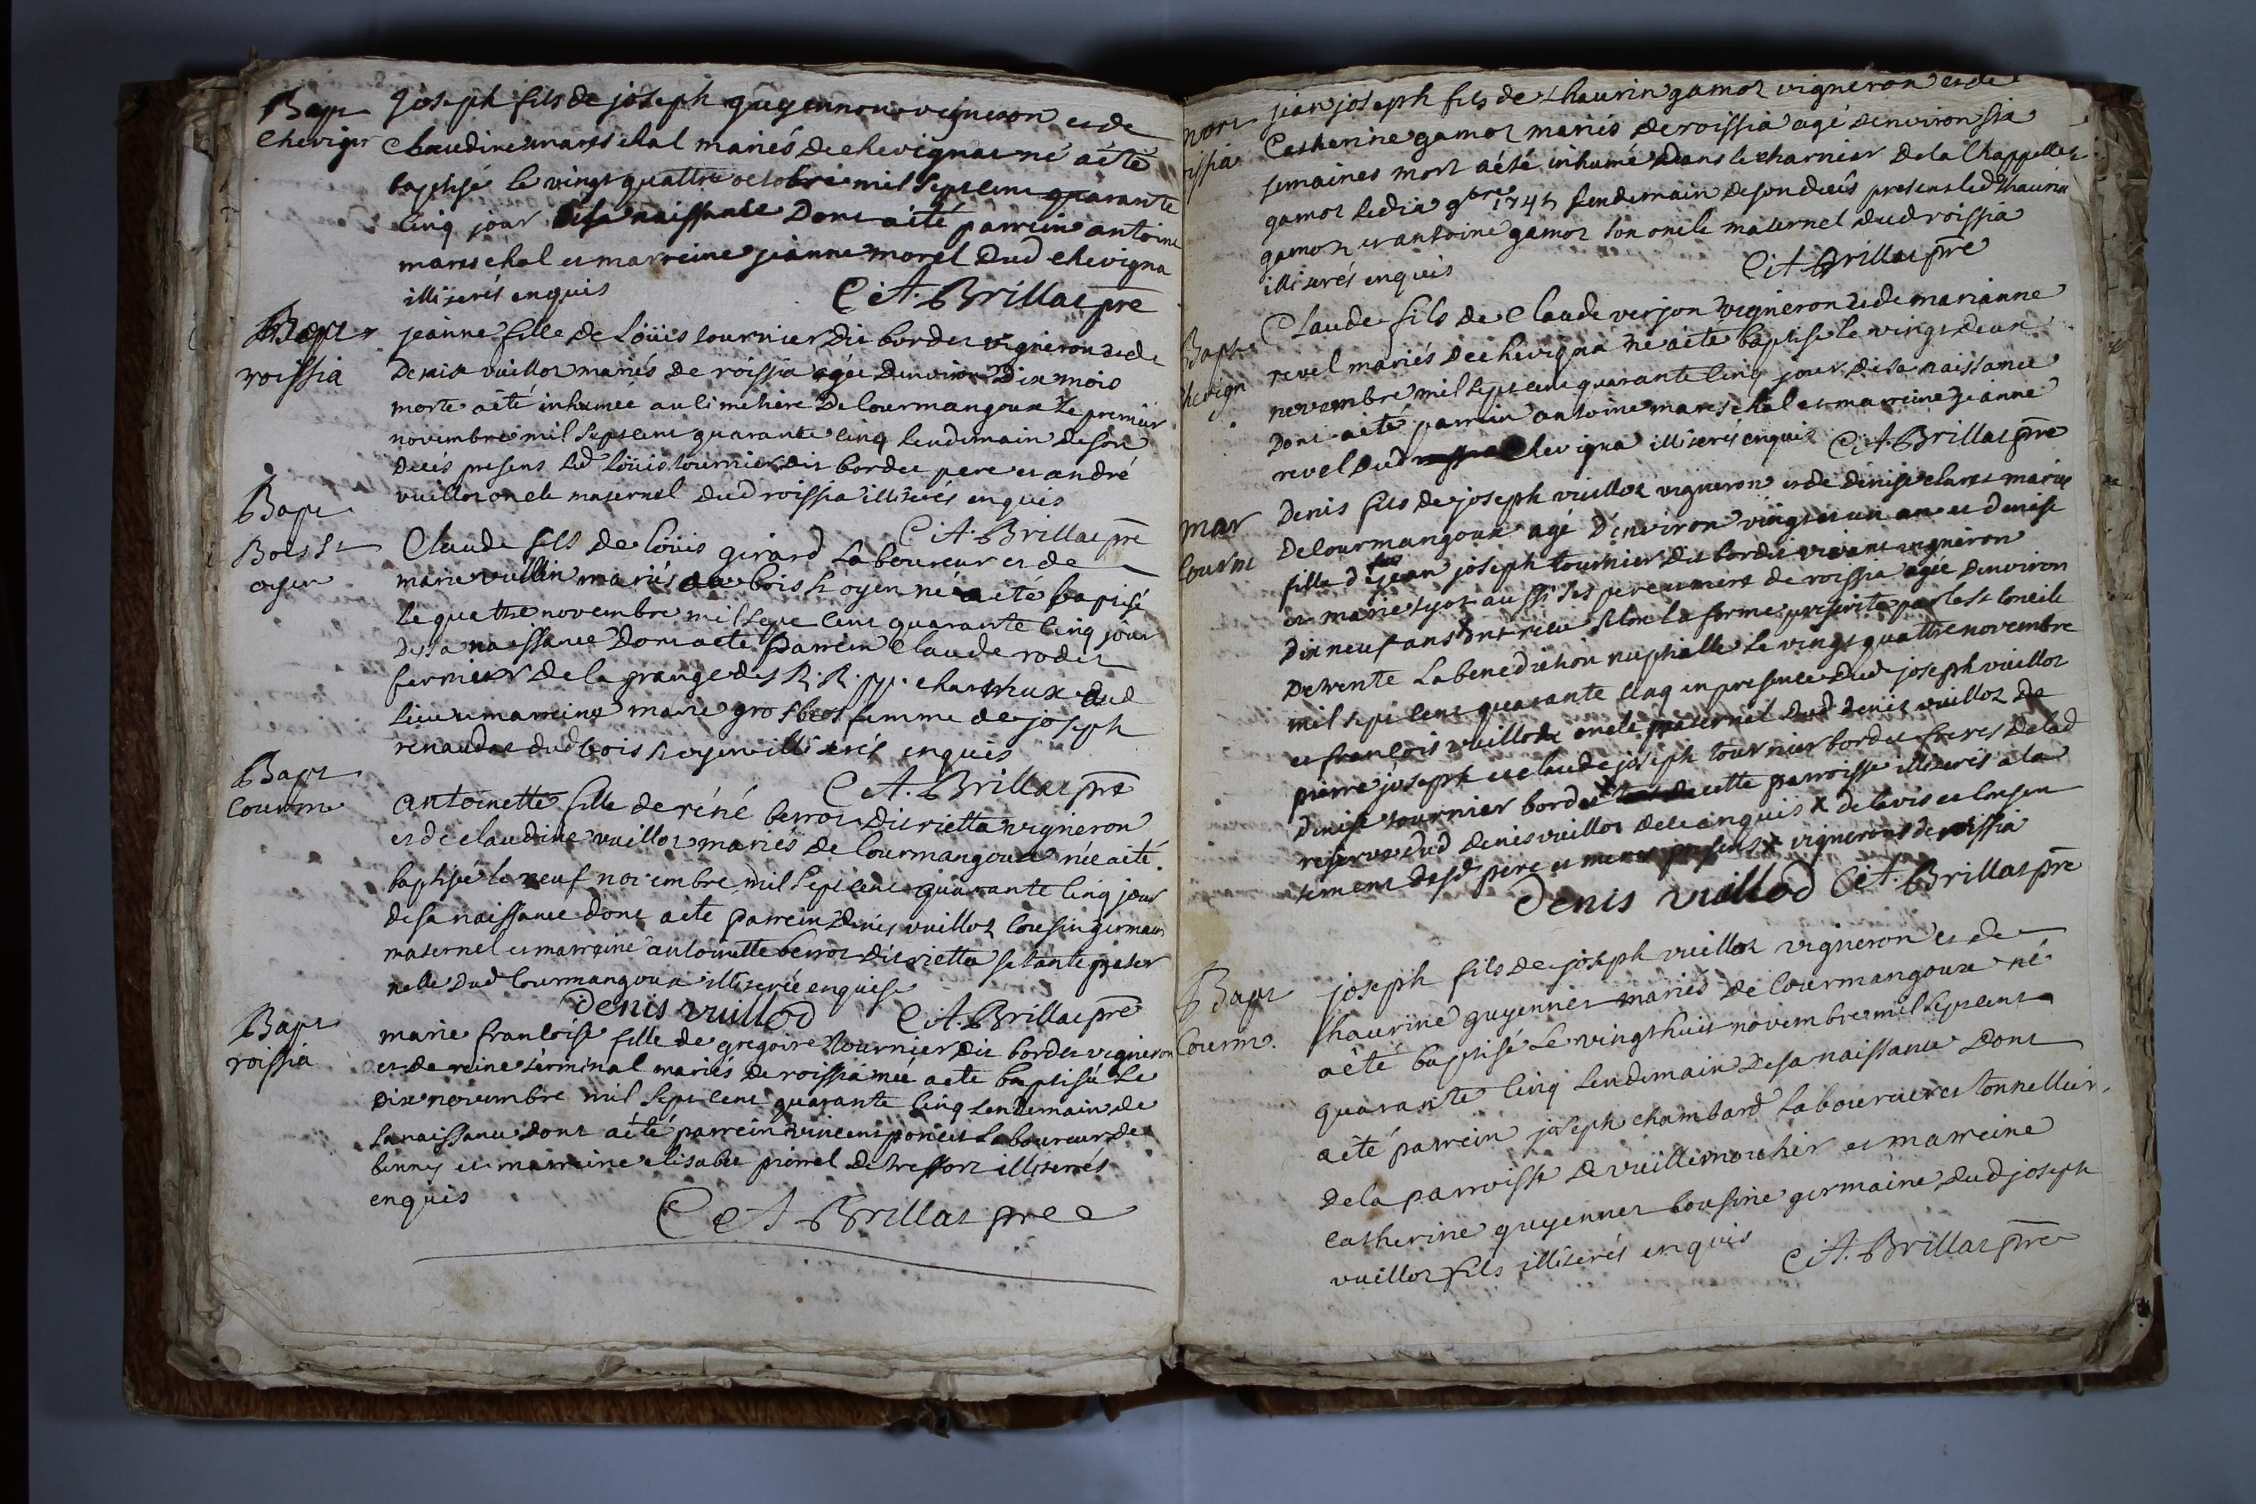 Bapt
chevign
joseph fils de joseph guyennon vigneron et de
Claudine mareschal mariés de chevignat né a été
baptisé le vingt quattre octobre mil sept cent quarante
cinq jour de sa naissance dont a été parrein antoine
mareschal et marreine jeanne morel dud chevigna
illiterés enquis
C A. Brillat pre
roissia
jeanne fille de Loüis tournier dit bordet vigneron et de
denise vuillot mariés de roissia agée denviron dix mois
morte a été inhumée au cimetiere de Courmangoux le premier
novembre mil sept cent quarante cinq lendemain de son
decés presens led Loüis tournier dit bordet pere et andré
vuillot oncle maternel dud roissia illiterés enquis
C A. Brillat pre
Bapt
Bois St
oyen
Claude fils de Loüis girard laboureur et de
marie vullin mariés au bois st oyen né a été baptisé
le quattre novembre mil sept cent quarante cinq jour
de sa naissance dont acte parrein Claude rodet
fermier de la grange des R. R. pp. chartreux dud
lieu et marreine marie grosbos femme de joseph
renaudat dud bois st oyen illiterés enquis
C A. Brillat pre
Bapt
Courm
antoinette fille de réné berrot dit rietta vigneron
et de claudine vuillot mariés de Courmangoux née a été
baptisée le neuf novembre mil sept cent quarante cinq jour
de sa naissance dont acte parrein denis vuillot cousin germain
maternel et marreine antoinette berrot dit rietta sa tante pater
nelle dud Courmangoux illiterée enquise
denis vuillod C A. Brillat pre
Bapt
roissia
marie francoise fille de gregoire tournier dit bordet vigneron
et de reine terminal mariés de roissia née a été baptisée le
dix novembre mil sept cent quarante cinq lendemain de
sa naissance dont a été parrein vincent poncet laboureur de
benny et marreine elisabet pirrel de treffort illiterés
enquis
C A Brillat pre
mort
issia
jean joseph fils de thaurin gamot vigneron et de
Catherine gamot mariés de roissia agé denviron six
semaines mort a été inhumé dans le charnier de la Chappelle
gamot le dix 9bre 1745 lendemain de son decés presens led thaurin
gamot et antoine gamot son oncle maternel dud roissia
illiterés enquis
C A Brillat pre
Bapt
hevign
Claude fils de Claude verjon vigneron et de marianne
revel mariés de chevigna né a été baptisé le vingt deux
novembre mil sept cent quarante cinq jour de sa naissance
dont a été parrein antoine mareschal et marreine jeanne
revel dud chevigna illiterés enquis C A. Brillat pre
mar
courm
denis fils de joseph vuillot vigneron et de denise claret mariés
de courmangoux agé d'environ vingt et un an et denise
fille de fut jean joseph tournier dit bordet vivant vigneron
et marie tyot aussi ses pere et mere de roissia agée denviron
dix neuf ans ont recu selon la forme prescrite par le st concile
de trente la benediction nuptialle le vingt quattre novembre
mil sept cent quarante cinq en presence dud joseph vuillot
et francois vuillot oncle paternel dud denis vuillot de
pierre joseph et claude joseph tournier bordet freres de lad
denise tournier bordet x de cette parroisse illiterés a la
reserve dud denis vuillot de ce enquis x de lavis et consen
tement desd pere et mere presens x vignerons de roissia
denis vuillod C A. Brillat pre
Bapt
Courm.
joseph fils de joseph vuillot vigneron et de
thaurine guyennet mariés de Courmangoux né
a été baptisé le vingt huit novembre mil sept cent
quarante cinq lendemain de sa naissance dont
a été parrein joseph chambard laboureur et tonnellier
de la parroisse de vuillemotier et marreine
catherine guyennet cousine germaine dud joseph
vuillot fils illiterés enquis C A. Brillat pre